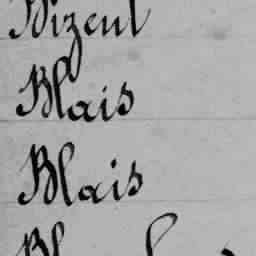 Bizeul
Blais
Blais